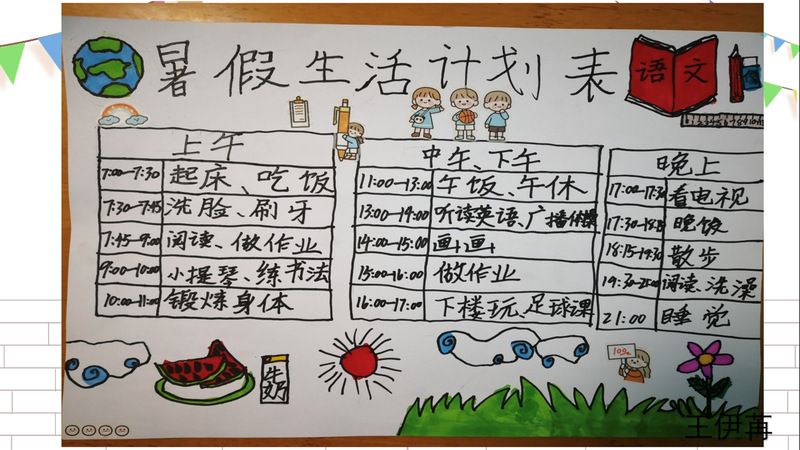 暑假生活计划表
语文
上午
7:00—7:30 起床、吃饭
7:30—7:45 洗脸、刷牙
7:45—9:00 阅读、做作业
9:00—10:00 小提琴、练书法
10:00—11:00 锻炼身体
中午、下午
11:00—13:00 午饭、午休
13:00—14:00 听读英语、广播体操
14:00—15:00 画画
15:00—16:00 做作业
16:00—17:00 下楼玩、足球课
晚上
17:00—17:30 看电视
17:30—18:15 晚饭
18:15—19:30 散步
19:30—21:00 阅读、洗澡
21:00 睡觉
牛奶
100
王伊苒